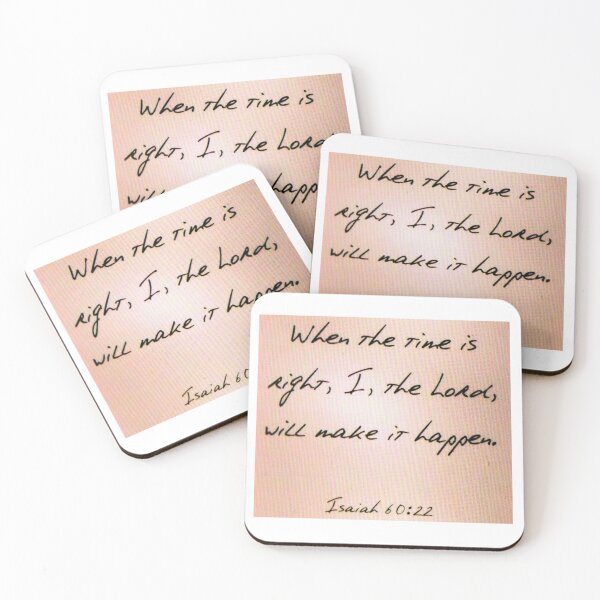 When the time is
right, I, the Lord,
will make it happen.
When the time is
right, I, the Lord,
will make it happen.
When the time is
right, I, the Lord,
will make it happen.
Isaiah 60
When the time is
right, I, the Lord,
will make it happen.
Isaiah 60:22